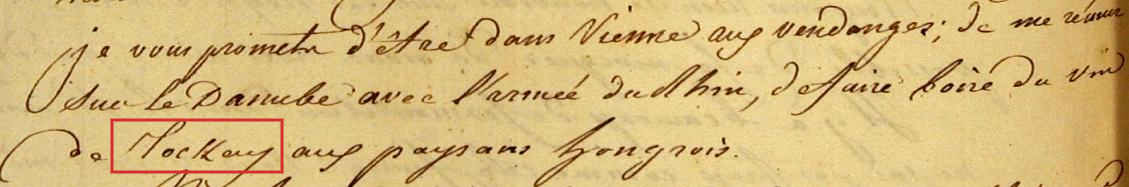 je vous promettre d'être dans Vienne aux vendanges; de me réunir
sur le Danube avec l'armée du Rhin, de faire boire du vin
de Tockay aux paysans hongrois.